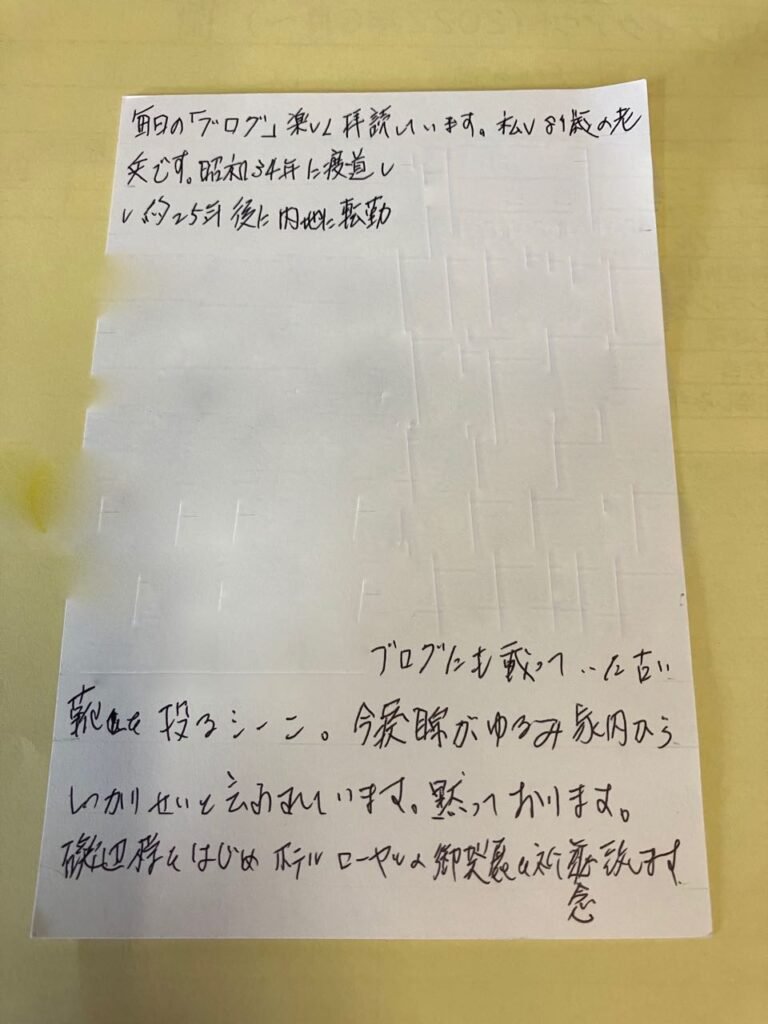 毎日の「ブログ」楽しく拝読しています。私し81歳の老
夫です。昭和34年に渡道し
し約25年後に内地に転勤
ブログにも載っていた古い
靴を投るシーン。今涙腺がゆるみ家内から
しっかりせいと云われています。黙っております。
様をはじめホテルローヤルの御発展を祈念致します